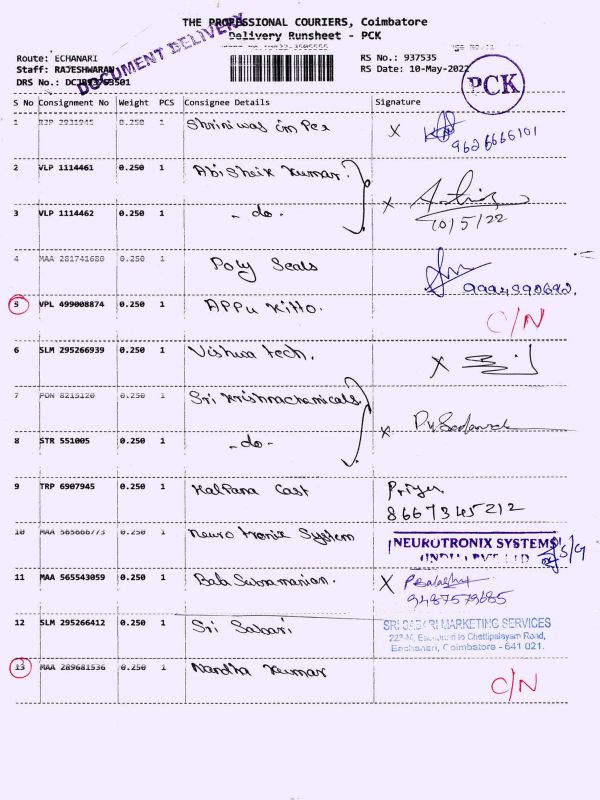 THE PROFESSIONAL COURIERS, Coimbatore
Delivery Runsheet - PCK
DOCUMENT DELIVERY
Route: ECHANARI
RS No.: 937535
Staff: RAJESHWARAN
RS Date: 10-May-2022
DRS No.:
PCK
S No Consignment No Weight PCS Consignee Details Signature
1 0.250 1 Shriniwas im Pex X 9626666101
2 VLP 1114461 0.250 1 Abisheik Kumar.
3 VLP 1114462 0.250 1 - do - X 10/5/22
4 MAA 281741680 0.250 1 Poly Seals
5 VPL 499008874 0.250 1 APPu Kitto. C/N
6 SLM 295266939 0.250 1 Vishwa tech. X
7 PON 8215120 0.250 1 Sri Krishnachemicals
8 STR 551005 0.250 1 - do - X
9 TRP 6907945 0.250 1 Kalpana Cast Priya
8667345212
10 MAA 565666773 0.250 1 Neuro tronix System NEUROTRONIX SYSTEMS
(INDIA) PVT LTD
11 MAA 565543059 0.250 1 Bala Subramanian. X
9487579685
12 SLM 295266412 0.250 1 Sri Sabari SRI SABARI MARKETING SERVICES
Eachanari to Chettipalayam Road,
Eachanari, Coimbatore - 641 021.
13 MAA 289681536 0.250 1 Nandha Kumar C/N